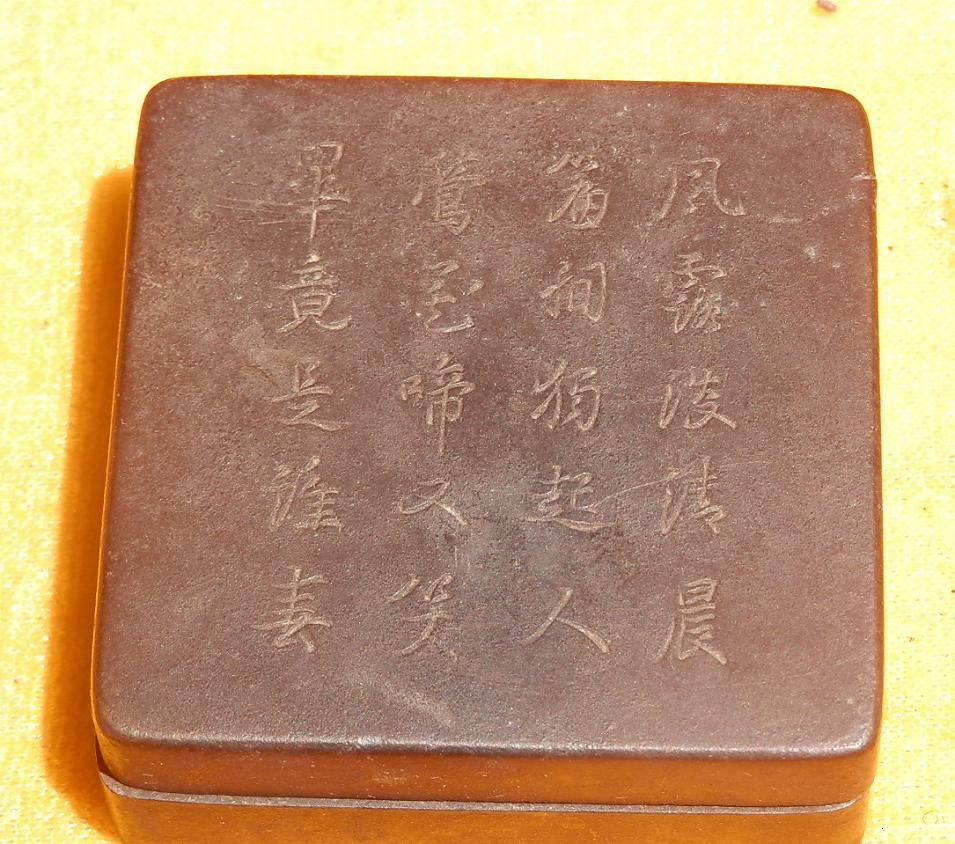 風露淡清晨
簾間獨起人
鶯花啼又笑
畢竟是誰春